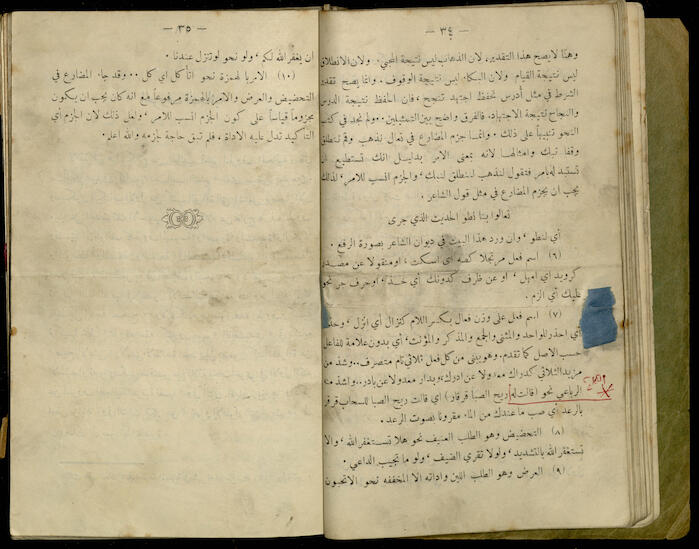 — ٣٤ —
وهنا لايصح هذا التقدير، لان الذهاب ليس نتيجة المجيء. ولان الانطلاق
ليس نتيجة القيام ولان البكاء ليس نتيجة الوقوف. وانما يصح تقدير
الشرط في مثل أدرس تحفظ اجتهد تنجح، فان الحفظ نتيجة الدرس
والنجاح نتيجة الاجتهاد. فالفرق واضح بين التمثيلين. ولم نجد في كتب
النحو تنبيهاً على ذلك. وانما جزم المضارع في تعال نذهب وقم ننطلق
وقفا نبك وامثالها لانه بمعنى الامر بدليل انك تستطيع ان
تستبدله بامر فتقول لنذهب لننطلق لنبك، والجزم انسب للامر، لذلك
يجب ان يجزم المضارع في مثل قول الشاعر.
تعالوا بنا نطو الحديث الذي جرى
أي لنطو، وان ورد هذا البيت في ديوان الشاعر بصورة الرفع.
(٦) اسم فعل مرتجلا كصه أي اسكت، او منقولا عن مصدر
كرويد اي امهل، او عن ظرف كدونك أي خذ، اوحرف جر نحو
عليك أي الزم.
(٧) اسم فعل على وزن فعال بكسر اللام كنزال أي انزل،
أي احذر للواحد والمثنى والجمع والمذكر والمؤنث، أي بدون علامة للفاعل
حسب الاصل كما تقدم. وهو يبنى من كل فعل ثلاثي تام متصرف.. وشذ من
مزيد الثلاثي كدراك معدولا عن ادرك، وبدار معدولا عن بادر.. واشذ منه
الرباعي نحو (قالت له ريح الصبا قرقار) اي قالت ريح الصبا للسحاب قرقر
بالرعد أي صب ما عندك من الماء مقرونا بصوت الرعد.
(٨) التحضيض وهو الطلب العنيف نحو هلا تستغفر الله، والا
تستغفر الله بالتشديد، ولولا تقري الضيف، ولو ما تجيب الداعي.
(٩) العرض وهو الطلب اللين واداته الا المخففه نحو الاتحبون
— ٣٥ —
ان يغفر الله لكم، ولو نحو لو تنزل عندنا.
(١٠) الامر بالهمزة نحو أتأكل اي كل.. وقد جاء المضارع في
التحضيض والعرض والامر بالهمزة مرفوعاً مع انه كان يجب ان يكون
مجزوماً قياساً على كون الجزم انسب للامر، ولعل ذلك لان الجزم أي
التأكيد تدل عليه الاداة، فلم تبق حاجة لجزمه والله اعلم.